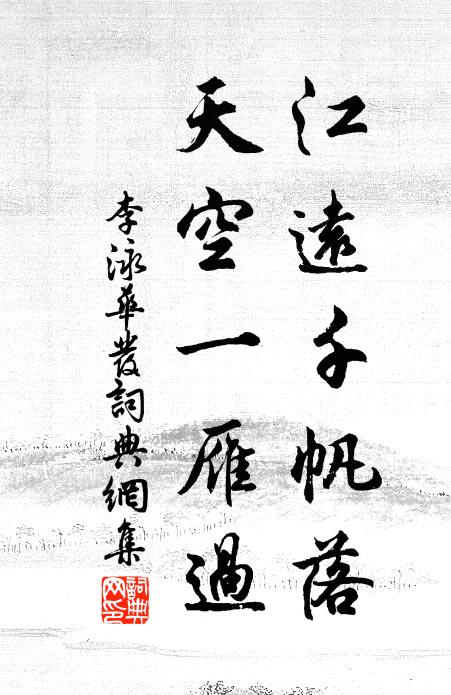 江遠千帆落
天空一雁過
李泳華發詞典網集
詞典網印